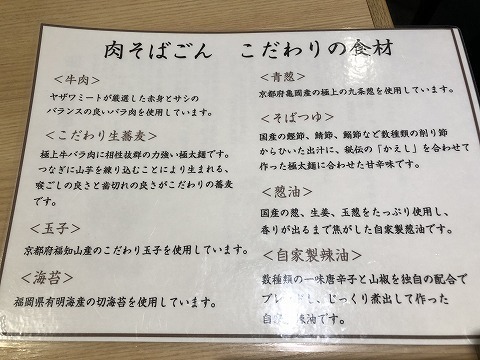 肉そばごん　こだわりの食材
＜牛肉＞
ヤザワミートが厳選した赤身とサシの
バランスの良いバラ肉を使用しています。
＜こだわり生蕎麦＞
極上牛バラ肉に相性抜群の力強い極太麺です。
つなぎに山芋を練り込むことにより生まれる、
喉ごしの良さと歯切れの良さがこだわりの蕎麦
です。
＜玉子＞
京都府福知山産のこだわり玉子を使用しています。
＜海苔＞
福岡県有明海産の切海苔を使用しています。
＜青葱＞
京都府亀岡産の極上の九条葱を使用しています。
＜そばつゆ＞
国産の鰹節、鯖節、鰯節など数種類の削り節
からひいた出汁に、秘伝の「かえし」を合わせて
作った極太麺に合わせた甘辛味です。
＜葱油＞
国産の葱、生姜、玉葱をたっぷり使用し、
香りが出るまで焦がした自家製葱油です。
＜自家製辣油＞
数種類の一味唐辛子と山椒を独自の配合で
ブレンドし、じっくり煮出して作った
自家製辣油です。